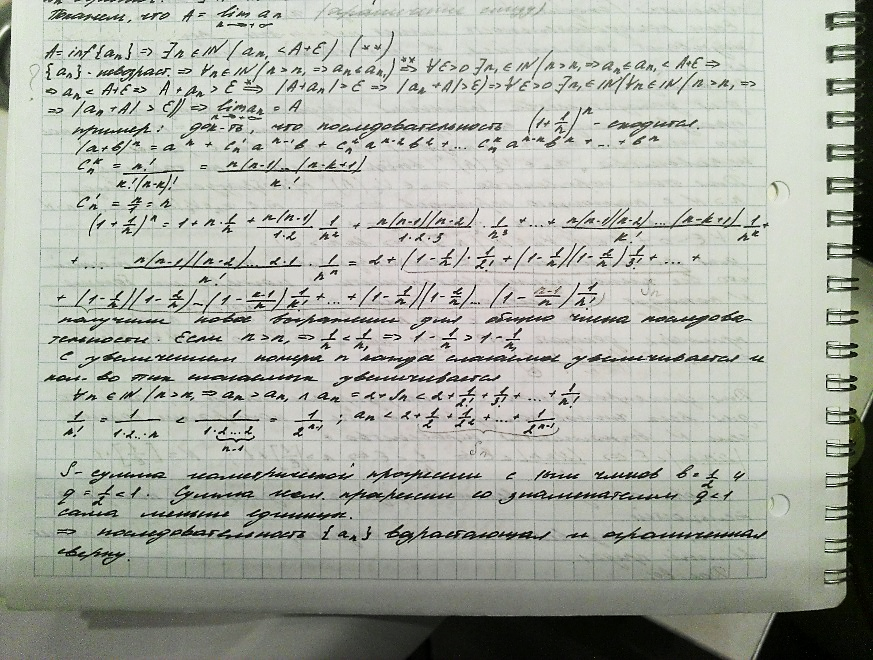 Покажем, что A = lim aₙ
n→+∞
A = inf{aₙ} ⇒ ∃ n₁∈ℕ (aₙ₁ < A+ε) (**)
{aₙ} - невозраст. ⇒ ∀n∈ℕ (n>n₁ ⇒ aₙ≤aₙ₁) ⇒** ∀ε>0 ∃n₁∈ℕ (n>n₁ ⇒ aₙ≤aₙ₁<A+ε ⇒
⇒ aₙ<A+ε ⇒ A+aₙ>ε ⇒ |A+aₙ|>ε ⇒ |aₙ+A|>ε) ⇒ ∀ε>0 ∃n₁∈ℕ (∀n∈ℕ (n>n₁ ⇒
⇒ |aₙ+A|>ε)) ⇒ lim aₙ = A
n→+∞
пример: док-ть, что последовательность (1+1/n)ⁿ - сходится.
(a+b)ⁿ = aⁿ + Cₙ¹aⁿ⁻¹b + Cₙ²aⁿ⁻²b² + ... Cₙᵏaⁿ⁻ᵏbᵏ + ... + bⁿ
Cₙᵏ = n!/k!(n-k)! = n(n-1)...(n-k+1)/k!
Cₙ¹ = n/1 = n
(1+1/n)ⁿ = 1+n·1/n + n(n-1)/1·2 · 1/n² + n(n-1)(n-2)/1·2·3 · 1/n³ + ... + n(n-1)(n-2)...(n-k+1)/k! · 1/nᵏ +
+ ... n(n-1)(n-2)...2·1/n! · 1/nⁿ = 2+(1-1/n)·1/2! + (1-1/n)(1-2/n)1/3! + ... +
+ (1-1/n)(1-2/n)...(1-(k-1)/n)1/k! + ... + (1-1/n)(1-2/n)...(1-(n-1)/n)1/n! Sₙ
получили новое выражении для общего члена последова-
тельности. Если n>n₁ ⇒ 1/n<1/n₁ ⇒ 1-1/n>1-1/n₁
С увеличением номера n каждое слагаемое увеличивается и
кол-во этих слагаемых увеличивается
∀n∈ℕ (n>n₁ ⇒ aₙ>aₙ₁ ∧ aₙ = 2+Sₙ < 2+1/2!+1/3!+...+1/n!
1/n! = 1/1·2...n < 1/1·2...2 = 1/2ⁿ⁻¹ ; aₙ < 2+1/2+1/2²+...+1/2ⁿ⁻¹
n-1 Sₙ
S - сумма геометрической прогрессии с 1ым членом b=1/2 и
q = 1/2 < 1. Сумма геом. прогрессии со знаменателем q<1
сама меньше единицы.
⇒ последовательность {aₙ} возрастающая и ограниченная
сверху.